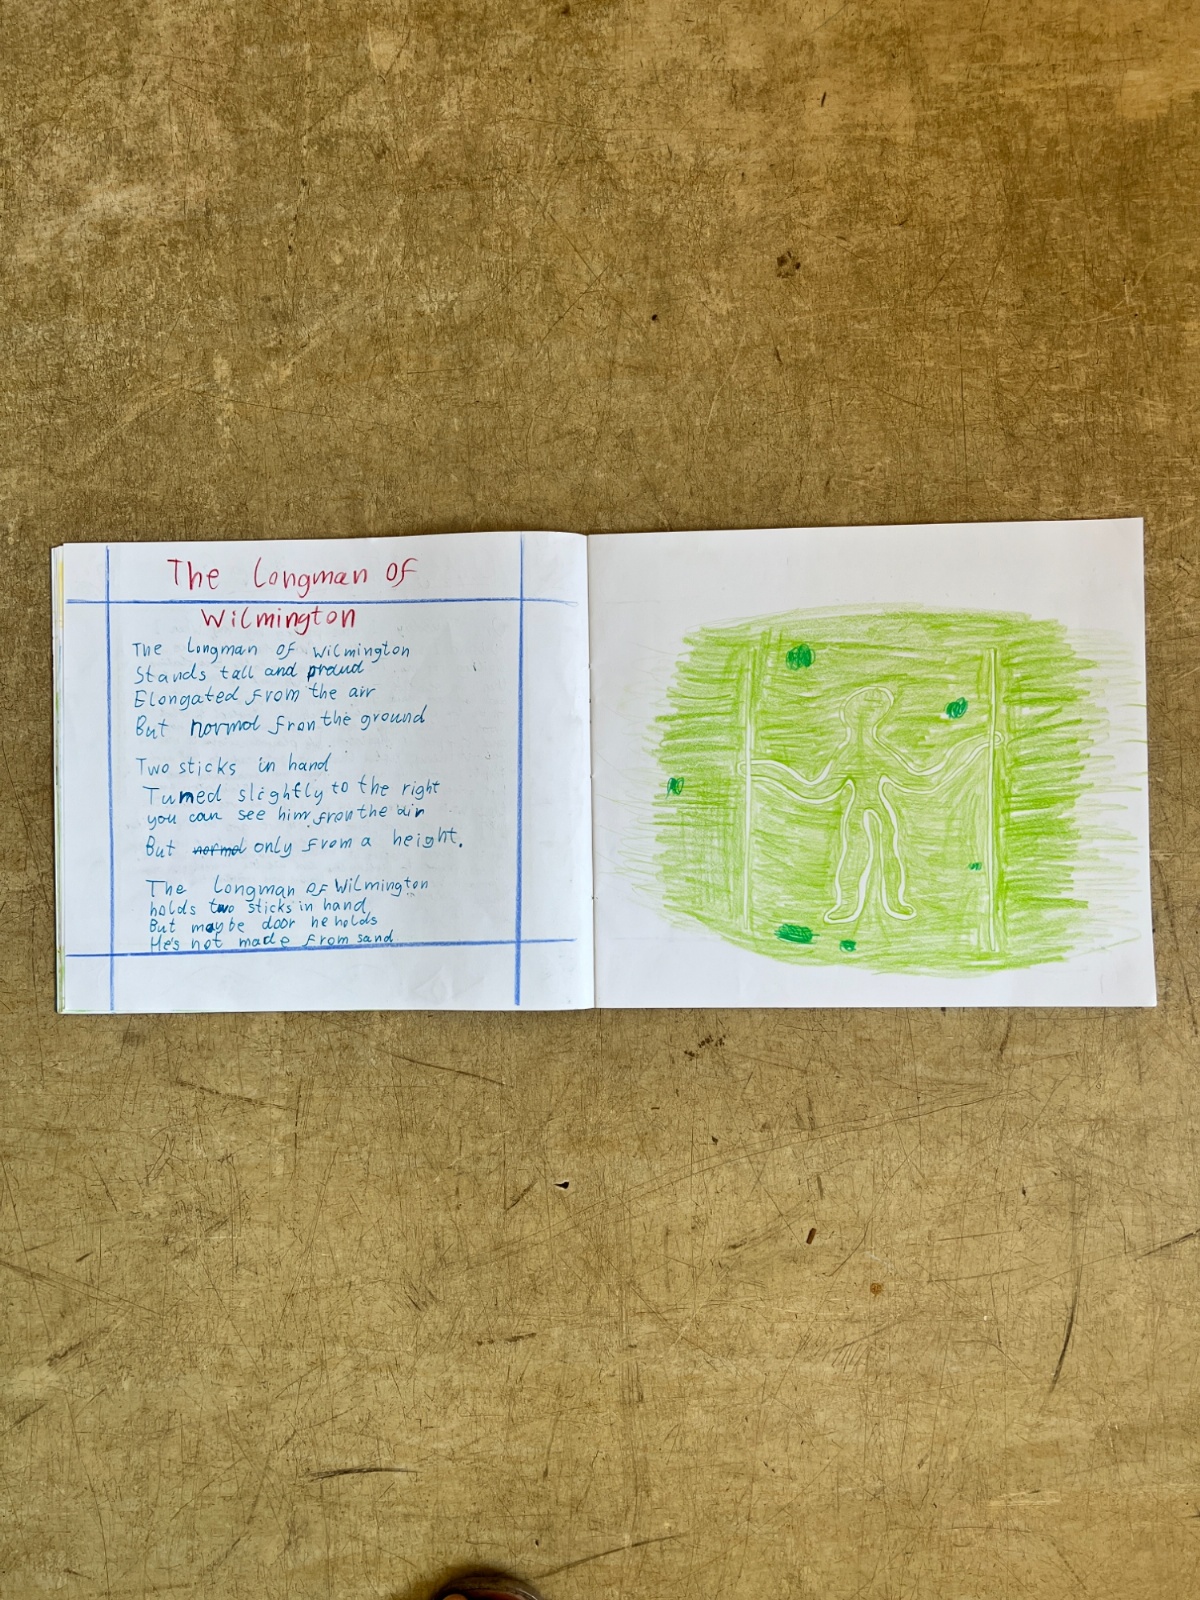 The Longman Of
Wilmington
The Longman OF Wilmington
Stands tall and proud
Elongated from the air
But normal from the ground
Two sticks in hand
Turned slightly to the right
you can see him from the air
But normal only from a height.
The Longman OF Wilmington
holds two sticks in hand
But maybe door he holds
He's not made from sand